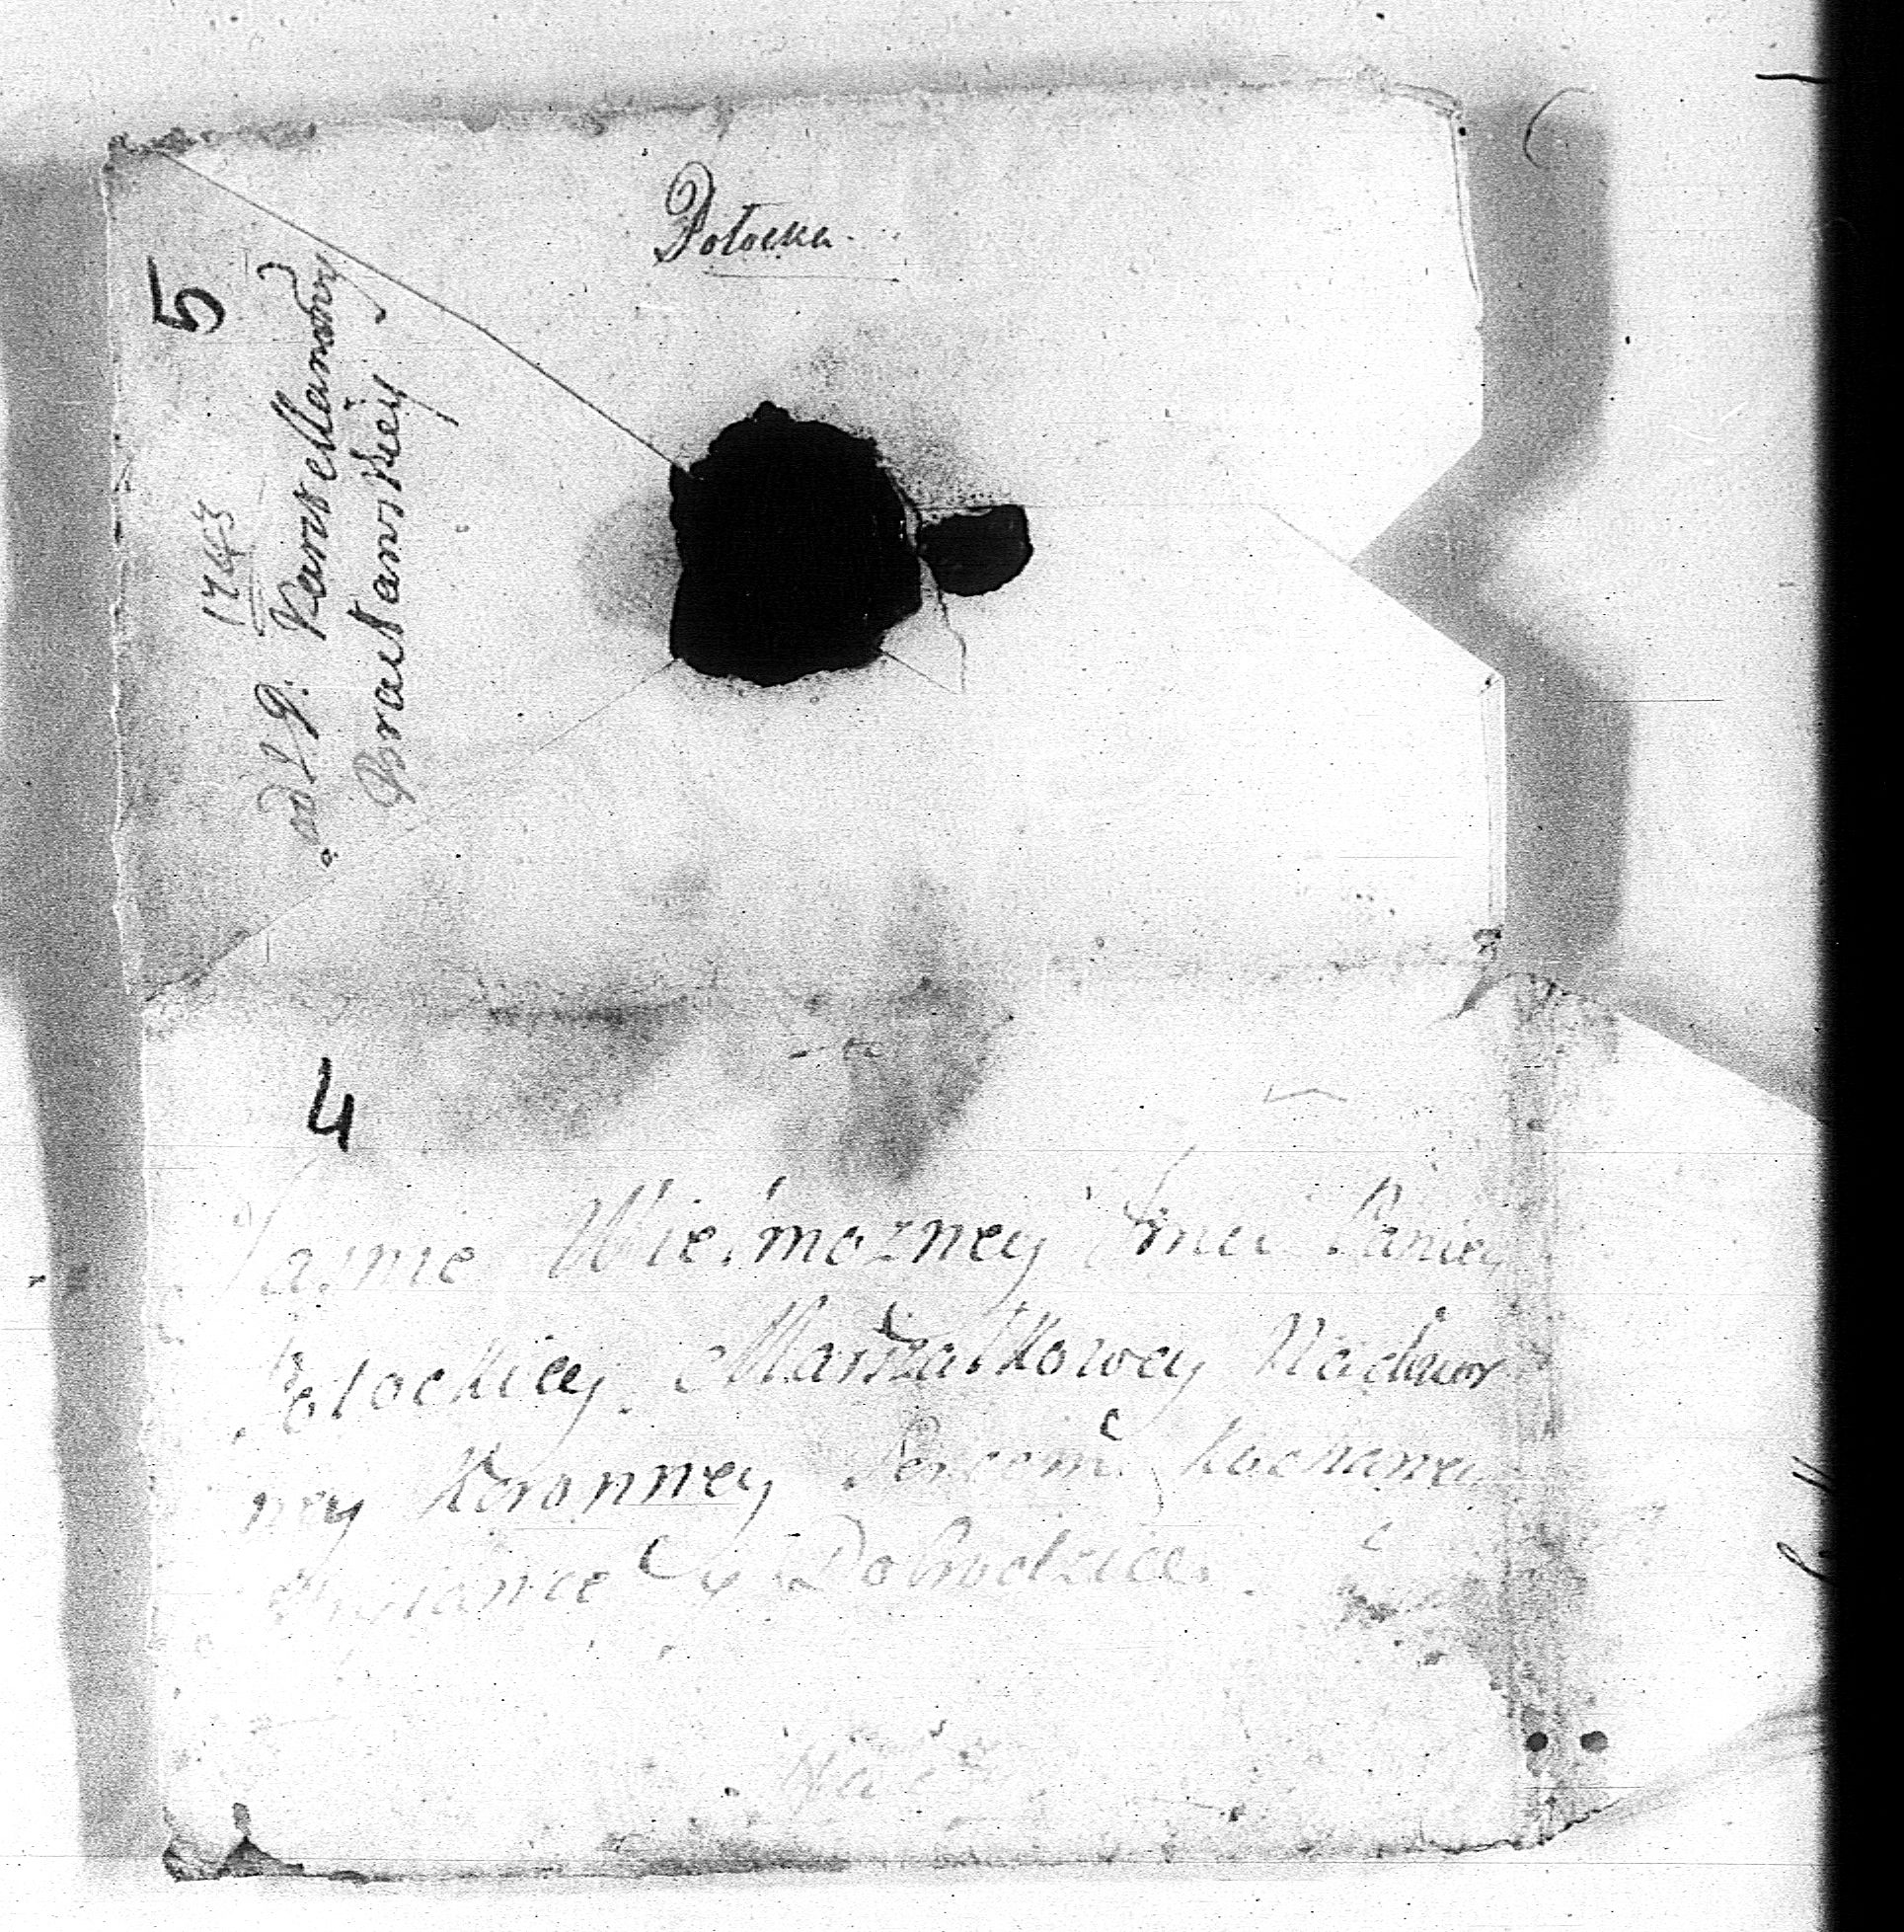 Potocka
5
1743
od J P: Kasztellanowy
Bracławskiey
4
Jasnie Wielmozney Jmci Paniey
Potockiey Marszałkowey Nadwor
ney Koronney Kochaney
y Dobrodzice.